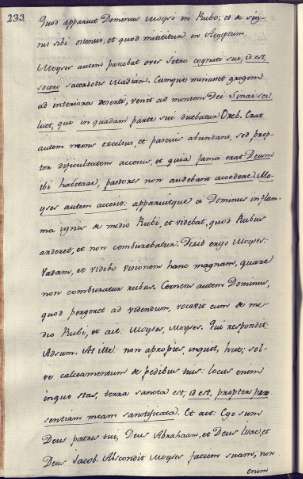 233
Quod apparuit Dominus Moysi in Rubo, et de sig-
nis ibi ostensis, et quod reversus in Ægyptum.
Moyses autem pascebat oves Jethro cognati sui, id est
soceri sacerdotis Madian. Cumque minasset gregem
ad interiora deserti, venit ad montem Dei Sinai sci-
licet, qui in quadam parte sui dicebatur Oreb. Erat
autem mons excelsus, et pascuis abundans, sed prop-
ter difficultatem accensus, et quia fama erat Deum
ibi habitare, pastores non audebant accedere. Mo-
yses autem accessit. apparuitque ei Dominus in flam-
ma ignis de medio Rubi, et videbat, quod Rubus
arderet, et non combureretur. Dixit ergo Moyses:
Vadam, et videbo visionem hanc magnam, quare
non comburatur rubus. Cernens autem Dominus,
quod pergeret ad videndum, vocavit eum de me-
dio Rubi, et ait. Moyses, Moyses. Qui respondit
Adsum. At ille non apropies, inquit, huc, sol-
ve calceamentum de pedibus tuis. locus enim
in quo stas, terra sancta est, id est, propter præ-
sentiam meam sanctificata. Et ait. Ego sum
Deus patris tui, Deus Abraham, et Deus Isac, et
Deus Jacob. Abscondit Moyses faciem suam, non
enim